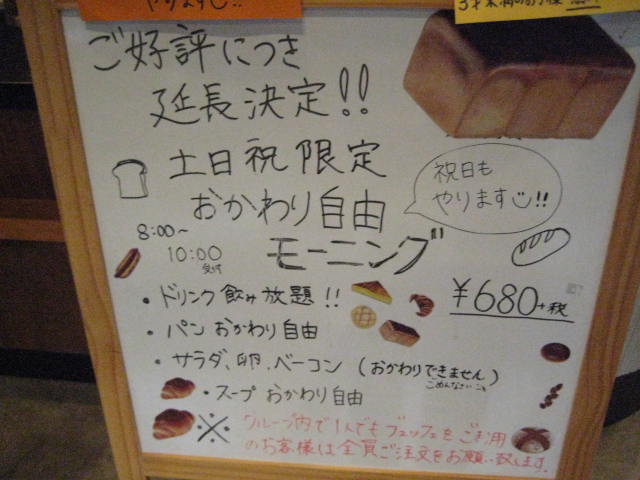 やります!!
ご好評につき
延長決定!!
土日祝限定
おかわり自由
祝日も
やります!!
8:00～
10:00
受付
モーニング
・ドリンク飲み放題!!
¥680+税
・パンおかわり自由
・サラダ、卵、ベーコン (おかわりできません)
ごめんなさい
・スープ おかわり自由
※グループ内で1人でもブュッフェをご利用
のお客様は全員ご注文をお願い致します。